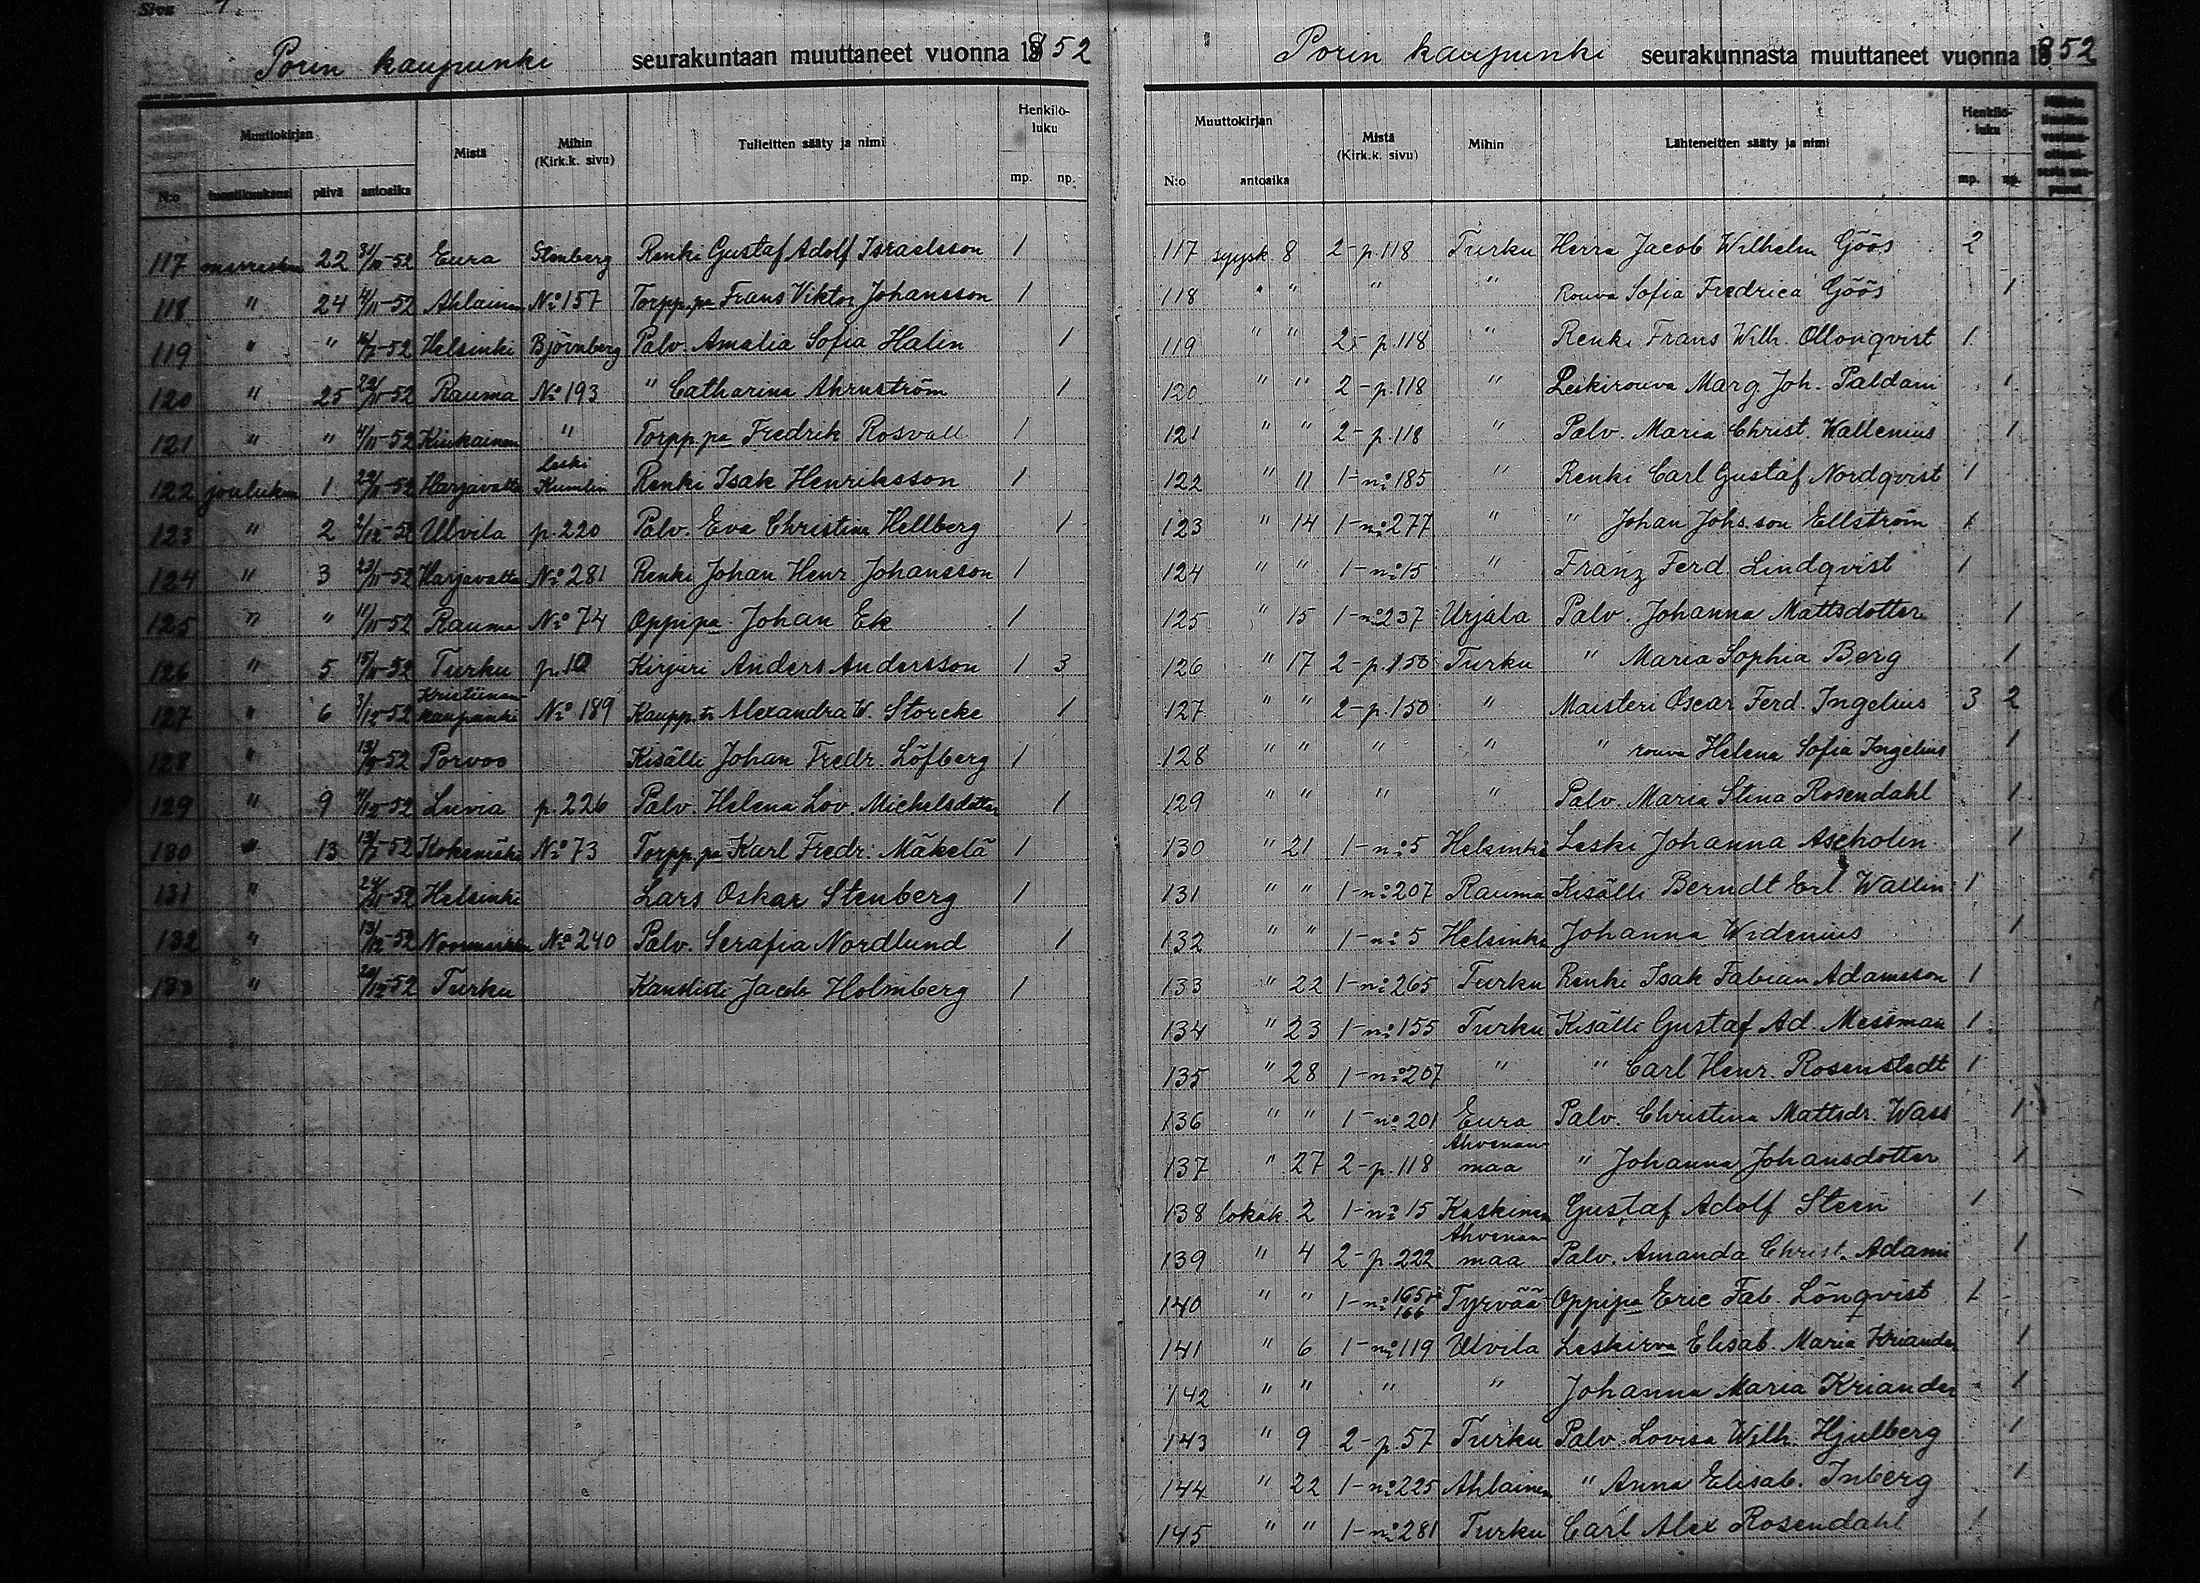 Sivu
Porin kaupunki seurakuntaan muuttaneet vuonna 1852
Muuttokirjan Mistä Mihin (Kirk.k. sivu) Tulleitten sääty ja nimi Henkilö-luku
N:o tuontikuukausi päivä antoaika mp. np.
117 marrask 22 31/10-52 Eura Stenberg Renki Gustaf Adolf Israelsson 1
118 " 24 4/11-52 Ahlainen No 157 Torpp.pa Frans Viktor Johansson 1
119 " " -52 Helsinki Björnberg Palv. Amalia Sofia Halin 1
120 " 25 22/11-52 Rauma No 193 " Catharina Ahrnström 1
121 " " 4/11-52 Kiukainen " Torpp.pa Fredrik Rosvall 1
122 jouluk 1 22/11-52 Harjavalta Leski Kumlin Renki Isak Henriksson 1
123 " 2 2/12-52 Ulvila p. 220 Palv. Eva Christina Hellberg 1
124 " 3 23/11-52 Harjavalta No 281 Renki Johan Henr. Johansson 1
125 " " 11/11-52 Rauma No 74 Oppipa Johan Ek 1
126 " 5 15/11-52 Turku p. 10 Kirjuri Anders Andersson 1 3
127 " 6 3/12-52 Kristiinan kaupunki No 189 Kaupp. Alexandra W. Storcke 1
128 " -52 Porvoo Kisälli Johan Fredr. Löfberg 1
129 " 9 4/12-52 Luvia p. 226 Palv. Helena Lov. Michelsdotter 1
130 " 13 -52 Kokemäki No 73 Torpp.pa Karl Fredr. Mäkelä 1
131 " 24/11-52 Helsinki Lars Oskar Stenberg 1
132 " 13/12-52 Noormarkku No 240 Palv. Serafia Nordlund 1
133 " 20/12-52 Turku Kanslisti Jacob Holmberg 1
Porin kaupunki seurakunnasta muuttaneet vuonna 1852
Muuttokirjan Mistä (Kirk.k. sivu) Mihin Lähteneitten sääty ja nimi Henkilö-luku
N:o antoaika mp. np.
117 syysk. 8 2-p. 118 Turku Herra Jacob Wilhelm Göös 2
118 " " " " Rouva Sofia Fredrica Göös 1
119 " " 2-p. 118 " Renki Frans Wilh. Ollonqvist 1
120 " " 2-p. 118 " Leskirouva Marg. Joh. Paldani 1
121 " " 2-p. 118 " Palv. Maria Christ. Wallenius 1
122 " 11 1-no 185 " Renki Carl Gustaf Nordqvist 1
123 " 14 1-no 277 " " Johan Johs.son Ellström 1
124 " " 1-no 15 " Franz Ferd. Lindqvist 1
125 " 15 1-no 237 Urjala Palv. Johanna Mattsdotter 1
126 " 17 2-p. 150 Turku " Maria Sophia Berg 1
127 " " 2-p. 150 " Maisteri Oscar Ferd. Ingelius 3 2
128 " " " " " rouva Helena Sofia Ingelius 1
129 " " " " Palv. Maria Stina Rosendahl 1
130 " 21 1-no 5 Helsinki Leski Johanna Ascholin 1
131 " " 1-no 207 Rauma Kisälli Berndt Erl. Wallin 1
132 " " 1-no 5 Helsinki Johanna Widenius 1
133 " 22 1-no 265 Turku Renki Isak Fabian Adamsson 1
134 " 23 1-no 155 Turku Kisälli Gustaf Ad. Messman 1
135 " 28 1-no 207 " " Carl Henr. Rosenstedt 1
136 " " 1-no 201 Eura Palv. Christina Mattsdr. Wass 1
137 " 27 2-p. 118 Ahvenanmaa " Johanna Johansdotter 1
138 lokak 2 1-no 15 Kaskinen Gustaf Adolf Steen 1
139 " 4 2-p. 222 Ahvenanmaa Palv. Amanda Christ. Adami 1
140 " " 1-no 165 166 Tyrvää Oppipa Eric Fab. Lönqvist 1
141 " 6 1-no 119 Ulvila Leskirva Elisab. Maria Kriander 1
142 " " " " Johanna Maria Kriander 1
143 " 9 2-p. 57 Turku Palv. Lovisa Wilh. Hjulberg 1
144 " 22 1-no 225 Ahlainen " Anna Elisab. Inberg 1
145 " " 1-no 281 Turku Carl Alex Rosendahl 1